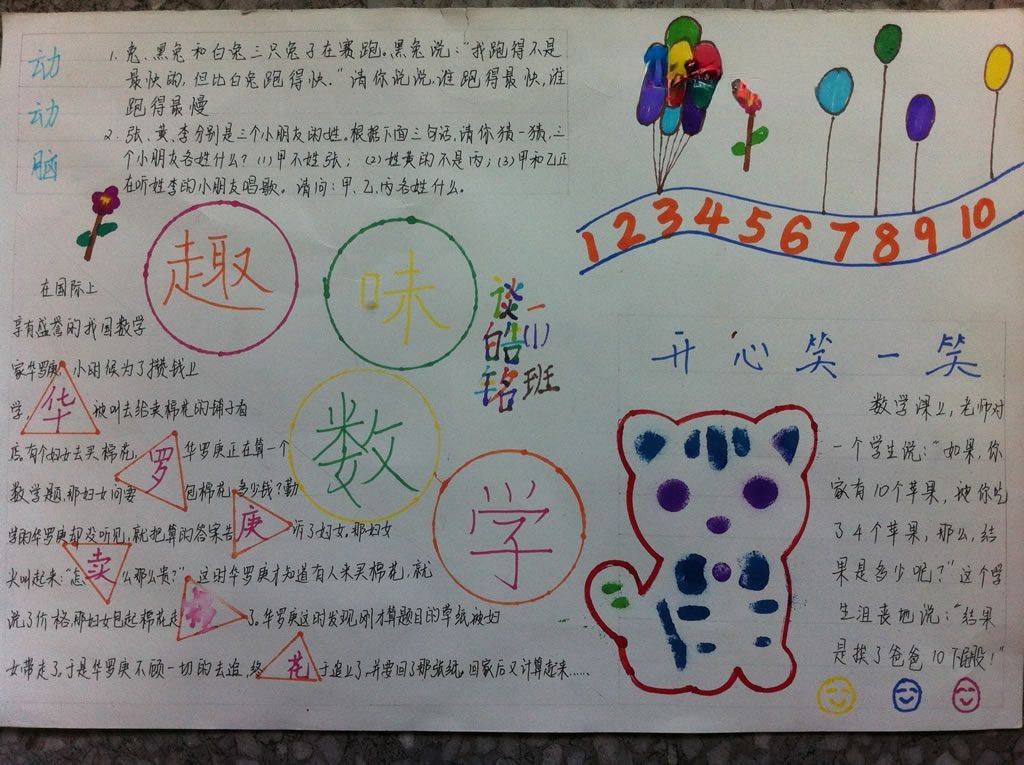 动动脑
1. 兔、黑兔和白兔三只兔子在赛跑。黑兔说："我跑得不是
最快的，但比白兔跑得快。"请你说说，谁跑得最快，谁
跑得最慢
2. 张、黄、李分别是三个小朋友的姓。根据下面三句话，请你猜一猜，三
个小朋友各姓什么？(1)甲不姓张；(2)姓黄的不是丙；(3)甲和乙正
在听姓李的小朋友唱歌。请问：甲、乙、丙各姓什么。
1 2 3 4 5 6 7 8 9 10
趣味数学
一(1)班
谈皓铭
在国际上
享有盛誉的我国数学
家华罗庚，小时候为了攒钱上
学，被叫去给卖棉花的铺子看
店，有个妇女去买棉花，华罗庚正在算一个
数学题，那妇女问要包棉花多少钱？勤
学的华罗庚却没听见，就把算的答案告诉了妇女，那妇女
尖叫起来："怎么那么贵？"，这时华罗庚才知道有人来买棉花，就
说了价格，那妇女包起棉花走了。华罗庚这时发现，刚才算题目的草纸被妇
女带走了，于是华罗庚不顾一切的去追，终于追上了，并要回了那张纸，回家后又计算起来……
华
罗
庚
卖
棉
花
开心笑一笑
数学课上，老师对
一个学生说："如果，你
家有10个苹果，被你吃
了4个苹果，那么，结
果是多少呢？"这个学
生沮丧地说："结果
是挨了爸爸10下屁股！"